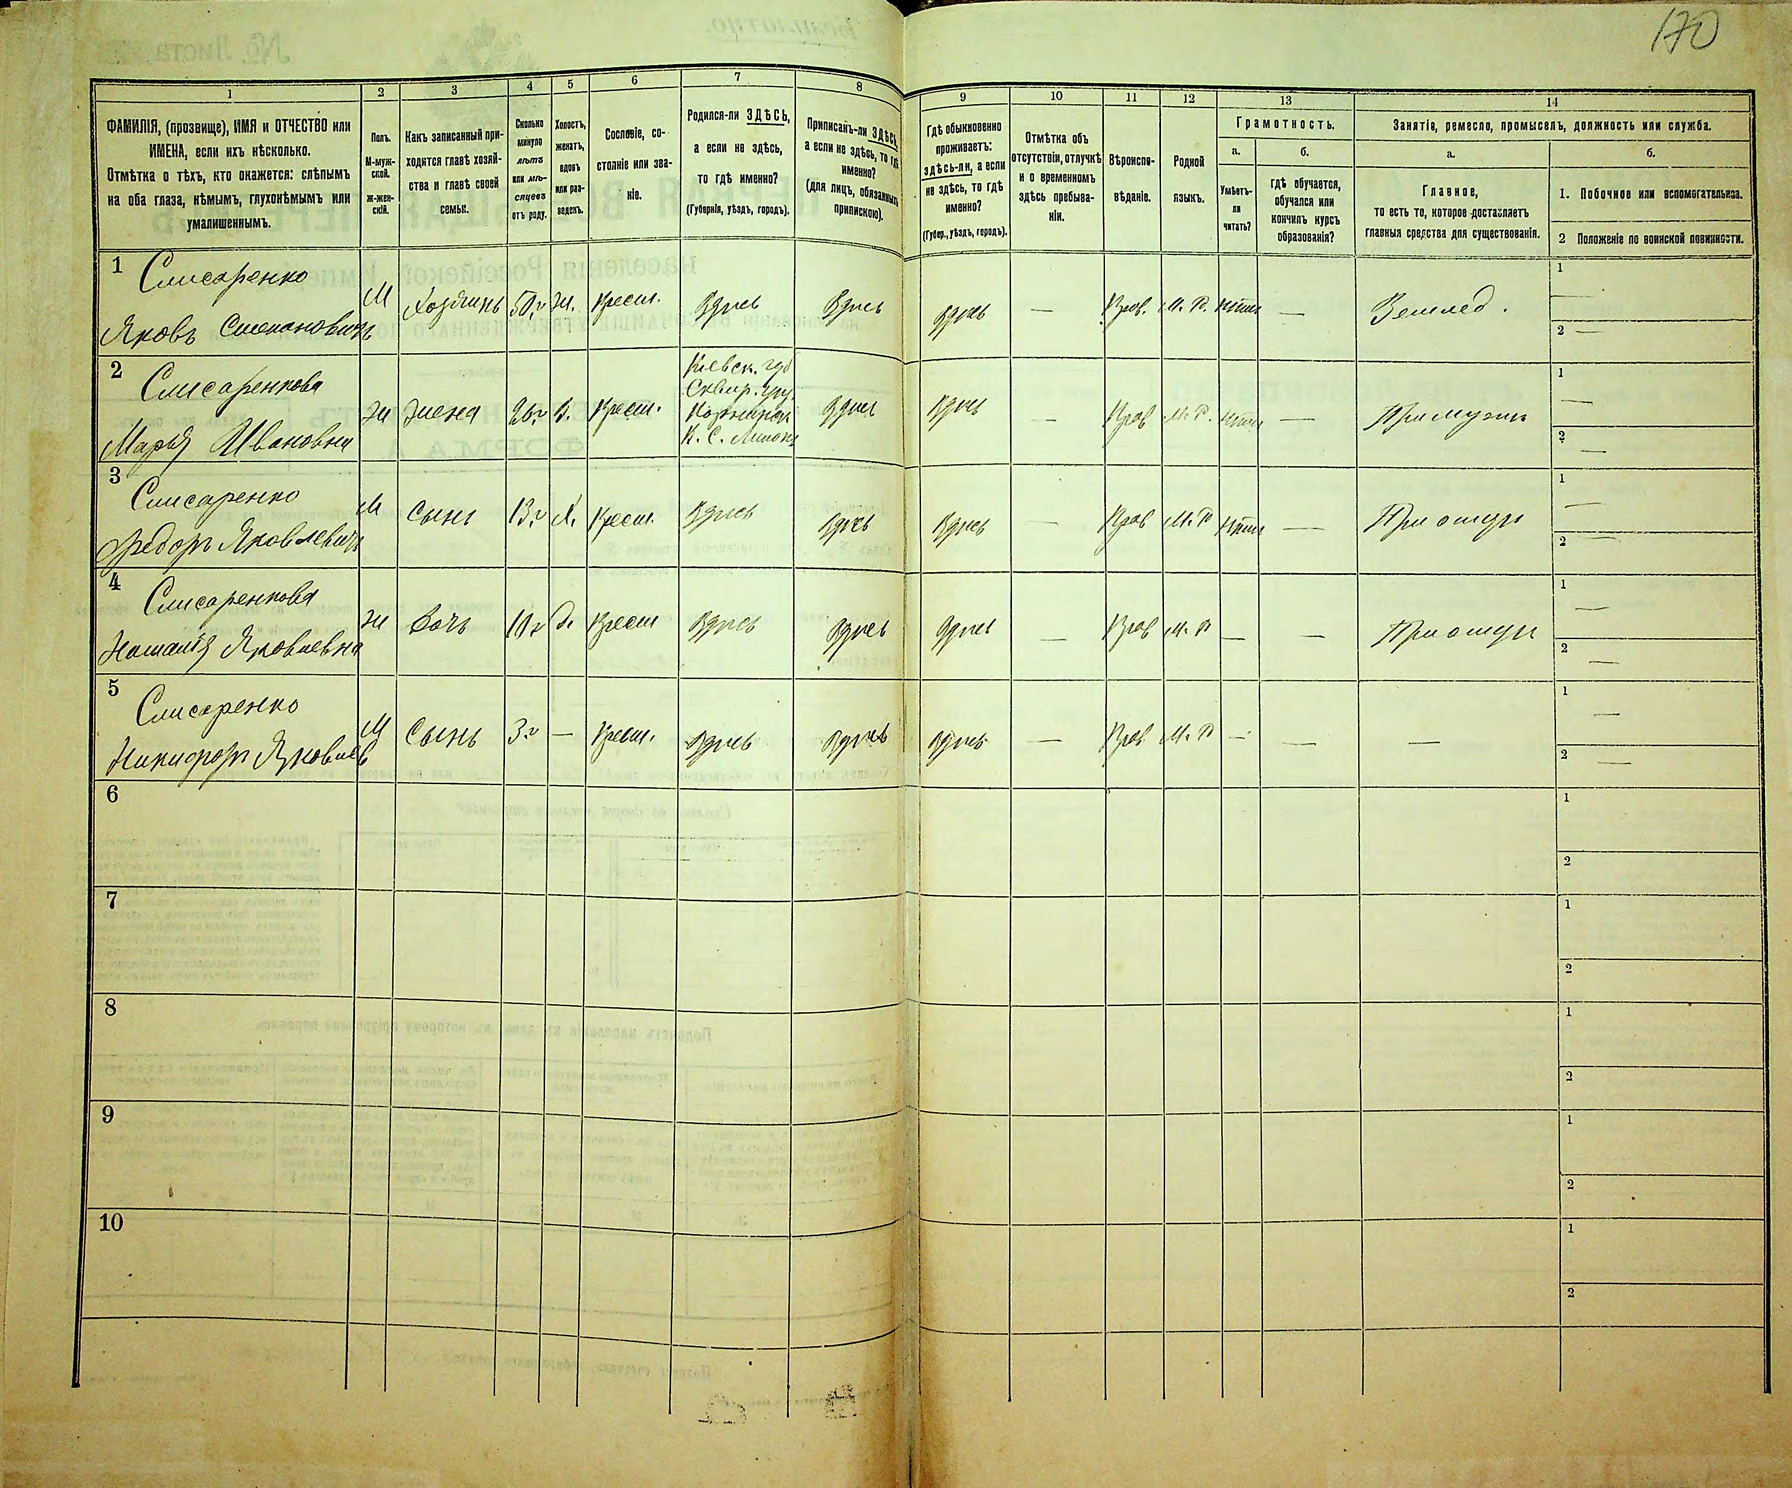 170
1
2
3
4
5
6
7
8
9
10
11
12
13
14
ФАМИЛІЯ, (прозвище), ИМЯ и ОТЧЕСТВО или
ИМЕНА, если ихъ нѣсколько.
Отмѣтка о тѣхъ, кто окажется: слѣпымъ
на оба глаза, нѣмымъ, глухонѣмымъ или
умалишеннымъ.
Полъ.
М-муж-
ской.
ж-жен-
скій.
Какъ записанный при-
ходится главѣ хозяй-
ства и главѣ своей
семьи.
Сколько
минуло
лѣтъ
или мѣ-
сяцевъ
отъ роду.
Холостъ,
женатъ,
вдовъ
или раз-
веденъ.
Сословіе, со-
стояніе или зва-
ніе.
Родился-ли ЗДѢСЬ,
а если не здѣсь,
то гдѣ именно?
(Губернія, уѣздъ, городъ).
Приписанъ-ли ЗДѢСЬ,
а если не здѣсь, то гдѣ
именно?
(для лицъ, обязанныхъ
припискою).
Гдѣ обыкновенно
проживаетъ:
здѣсь-ли, а если
не здѣсь, то гдѣ
именно?
(Губер., уѣздъ, городъ).
Отмѣтка объ
отсутствіи, отлучкѣ
и о временномъ
здѣсь пребыва-
ніи.
Вѣроиспо-
вѣданіе.
Родной
языкъ.
Грамотность.
а.
Умѣетъ-
ли
читать?
б.
гдѣ обучается,
обучался или
кончилъ курсъ
образованія?
Занятіе, ремесло, промыселъ, должность или служба.
а.
Главное,
то есть то, которое доставляетъ
главныя средства для существованія.
б.
1. Побочное или вспомогательное.
2 Положеніе по воинской повинности.
1 Слисаренко
Яковъ Степановичъ
М Хозяинъ 50 г ж. Крест. Здѣсь Здѣсь Здѣсь — Прав. М. Р. нѣтъ — Землед.
1 —
2 —
2 Слисаренкова
Марья Ивановна
Ж жена З. Крест.
Кіевск. губ
Сквир. у.
Здѣсь Здѣсь — Прав М. Р. нѣтъ — При мужѣ
1 —
2 —
3 Слисаренко
Федоръ Яковлевичъ
М Сынъ 13 г Х. Крест. Здѣсь Здѣсь Здѣсь — Прав М. Р нѣтъ — При отцѣ
1 —
2 —
4 Слисаренкова
Наталія Яковлевна
Ж дочь д. Крест Здѣсь Здѣсь Здѣсь — Прав М. Р — — При отцѣ
1 —
2 —
5 Слисаренко
Никифоръ Яковлев
М Сынъ 3 г — Крест. Здѣсь Здѣсь Здѣсь — Прав М. Р — — —
1 —
2 —
6
1
2
7
1
2
8
1
2
9
1
2
10
1
2